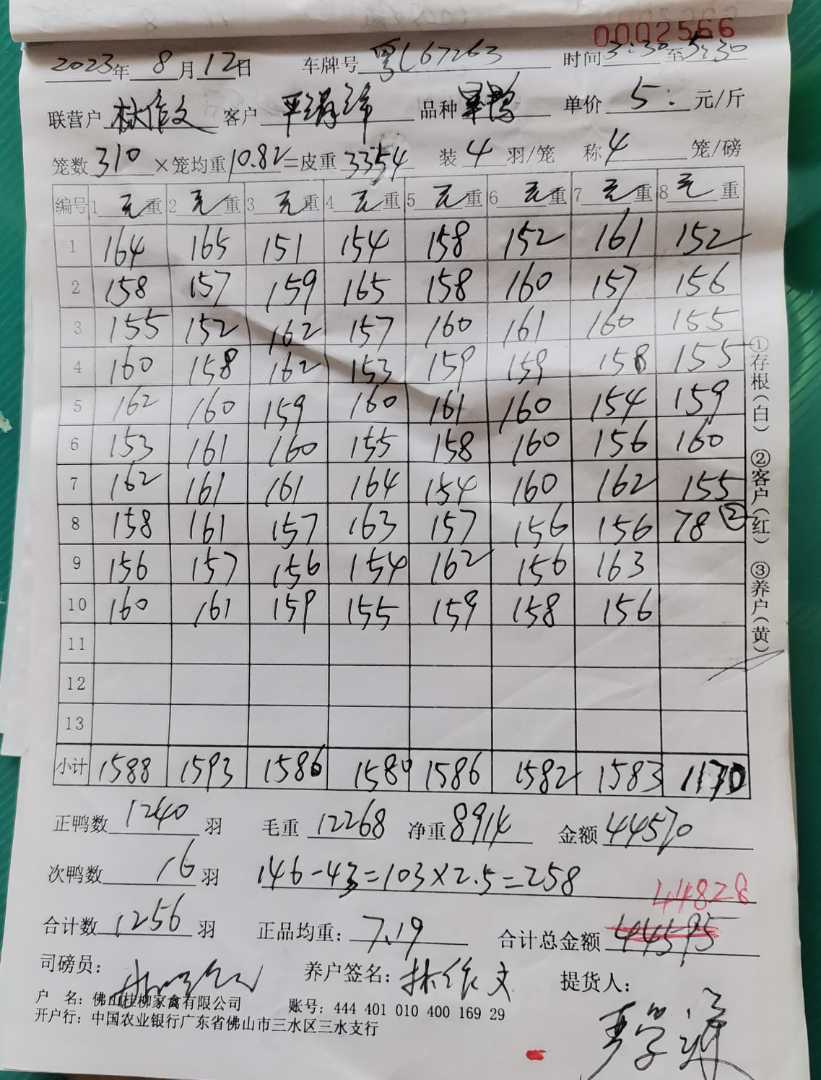 0002566
2023年 8月12日 车牌号 粤L67263 时间3:30至5:30
联营户 林作文 客户 品种 单价 5: 元/斤
笼数310×笼均重10.82=皮重3354 装4羽/笼 称4笼/磅
编号 1 毛重 2 毛重 3 毛重 4 毛重 5 毛重 6 毛重 7 毛重 8 毛重
1 164 165 151 154 158 152 161 152
2 158 157 159 165 158 160 157 156
3 155 152 162 157 160 161 160 155
4 160 158 162 153 159 159 158 155
5 162 160 159 160 161 160 154 159
6 153 161 160 155 158 160 156 160
7 162 161 161 164 154 160 162 155
8 158 161 157 163 157 156 156 78②
9 156 157 156 154 162 156 163
10 160 161 159 155 159 158 156
11
12
13
小计 1588 1593 1586 1580 1586 1582 1583 1170
①存根(白) ②客户(红) ③养户(黄)
正鸭数 1240 羽 毛重 12268 净重 8914 金额 44570
次鸭数 16 羽 146-43=103×2.5=258
44828
合计数 1256 羽 正品均重: 7.19 合计总金额 44595
司磅员: 养户签名: 林作文 提货人:
户 名: 佛山桂柳家禽有限公司 账号: 444 401 010 400 169 29
开户行: 中国农业银行广东省佛山市三水区三水支行